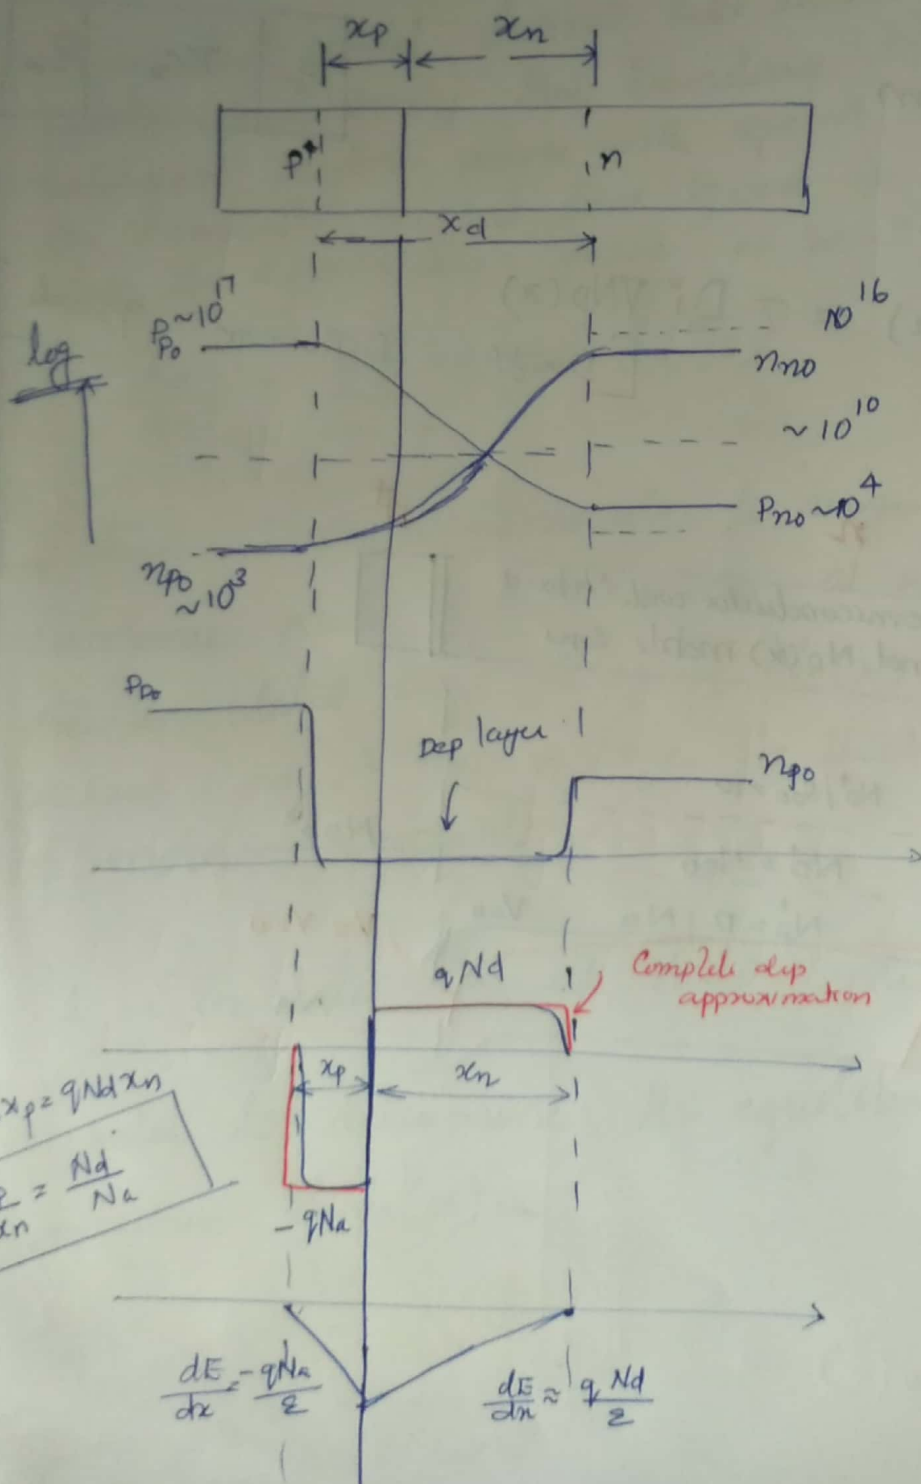 xp xn
p+ n
xd
Ppo ~10^17
10^16
log
nno
~10^10
Pno ~10^4
npo ~10^3
Ppo
Dep layer
npo
qNd
Complete dep
approximation
xp xn
xp = qNd xn
xn = Nd/Na
-qNa
dE/dx = -qNa/ε
dE/dx ≈ qNd/ε